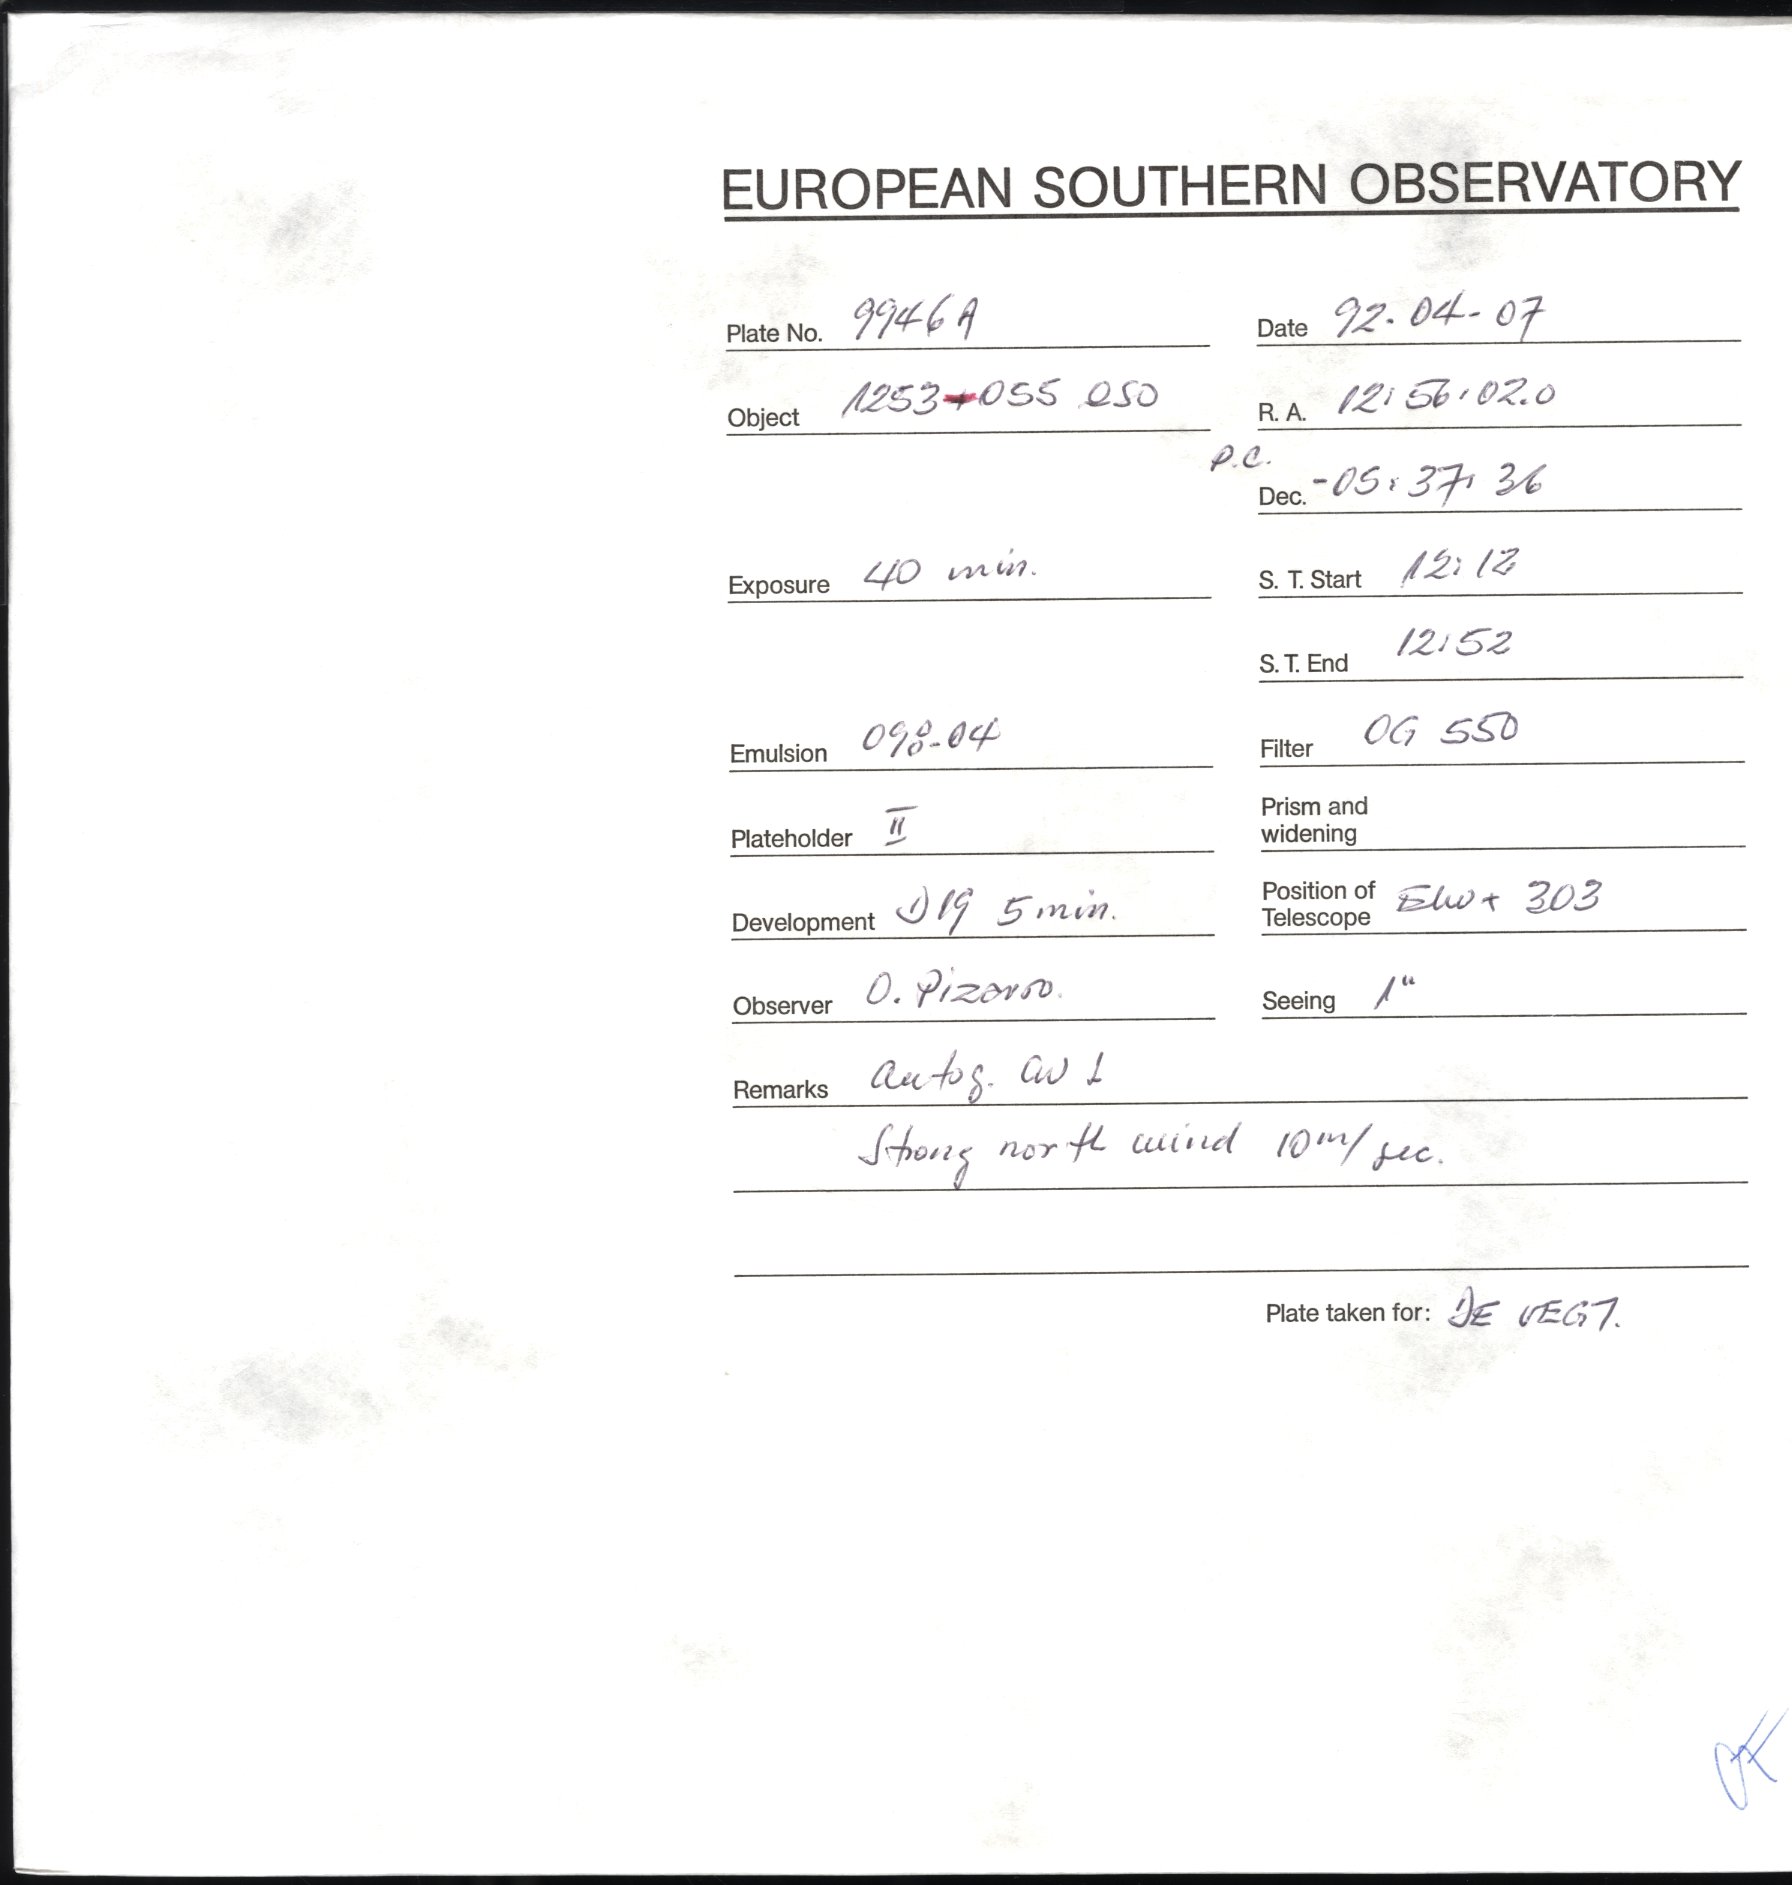 EUROPEAN SOUTHERN OBSERVATORY
Plate No. 9946A
Date 92-04-07
Object 1253-055 QSO
R. A. 12:56:02.0
P.C.
Dec. -05:37:36
Exposure 40 min.
S. T. Start 12:12
S. T. End 12:52
Emulsion 098-04
Filter OG 550
Plateholder II
Prism and
widening
Development D19 5 min.
Position of
Telescope
303
Observer O. Pizarro.
Seeing 1"
Remarks autog.
Strong north wind 10m/sec.
Plate taken for: DE VEGT.